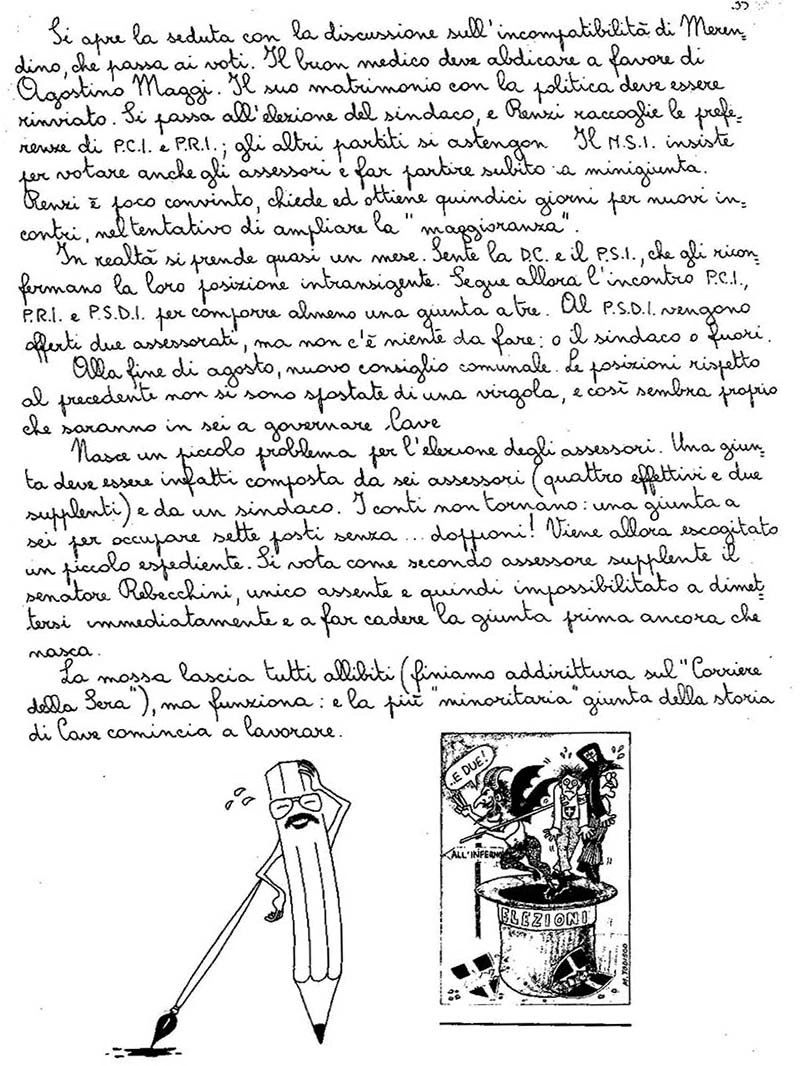 35
Si apre la seduta con la discussione sull'incompatibilità di Meren=
dino, che passa ai voti. Il buon medico deve abdicare a favore di
Agostino Maggi. Il suo matrimonio con la politica deve essere
rinviato. Si passa all'elezione del sindaco, e Renzi raccoglie le prefe=
renze di P.C.I. e P.R.I.; gli altri partiti si astengon Il M.S.I. insiste
per votare anche gli assessori e far partire subito a minigiunta.
Renzi è poco convinto, chiede ed ottiene quindici giorni per nuovi in=
contri, nel tentativo di ampliare la "maggioranza".
In realtà si prende quasi un mese. Sente la D.C. e il P.S.I., che gli ricon=
fermano la loro posizione intransigente. Segue allora l'incontro P.C.I.,
P.R.I. e P.S.D.I. per comporre almeno una giunta a tre. Al P.S.D.I. vengono
offerti due assessorati, ma non c'è niente da fare: o il sindaco o fuori.
Alla fine di agosto, nuovo consiglio comunale. Le posizioni rispetto
al precedente non si sono spostate di una virgola, e così sembra proprio
che saranno in sei a governare Cave
Nasce un piccolo problema per l'elezione degli assessori. Una giun=
ta deve essere infatti composta da sei assessori (quattro effettivi e due
supplenti) e da un sindaco. I conti non tornano: una giunta a
sei per occupare sette posti senza ... doppioni! Viene allora escogitato
un piccolo espediente. Si vota come secondo assessore supplente il
senatore Rebecchini, unico assente e quindi impossibilitato a dimet=
tersi immediatamente e a far cadere la giunta prima ancora che
nasca.
La mossa lascia tutti allibiti (finiamo addirittura sul "Corriere
della Sera"), ma funziona: e la più "minoritaria" giunta della storia
di Cave comincia a lavorare.
..E DUE!
ALL'INFERNO
ELEZIONI
M. TODISCO